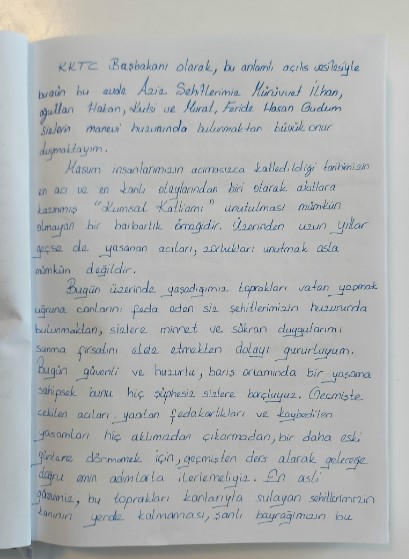 KKTC Başbakanı olarak, bu anlamlı açılış vesilesiyle
bugün bu evde Aziz Şehitlerimiz Mürüvvet İlhan,
oğulları Hakan, Kutsi ve Murat, Feride Hasan Gudum
sizlerin manevi huzurunda bulunmaktan büyük onur
duymaktayım.
Masum insanlarımızın acımasızca katledildiği tarihimizin
en acı ve en kanlı olaylarından biri olarak akıllara
kazınmış "Kumsal Katliamı" unutulması mümkün
olmayan bir barbarlık örneğidir. Üzerinden uzun yıllar
geçse de yaşanan acıları, zorlukları unutmak asla
mümkün değildir.
Bugün üzerinde yaşadığımız toprakları vatan yapmak
uğruna canlarını feda eden siz şehitlerimizin huzurunda
bulunmaktan, sizlere minnet ve şükran duygularımı
sunma fırsatını elde etmekten dolayı gururluyum.
Bugün güvenli ve huzurlu, barış ortamında bir yaşama
sahipsek bunu hiç şüphesiz sizlere borçluyuz. Geçmişte
çekilen acıları yapılan fedakarlıkları ve kaybedilen
yaşamları hiç aklımızdan çıkarmadan, bir daha eski
günlere dönmemek için, geçmişten ders alarak geleceğe
doğru emin adımlarla ilerlemeliyiz. En asli
görevimiz, bu toprakları kanlarıyla sulayan şehitlerimizin
kanının yerde kalmaması, şanlı bayrağımızın bu